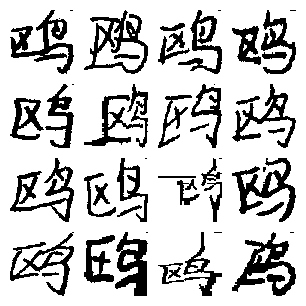 鸥鸥鸥鸥
鸥鸥鸥鸥
鸥鸥鸥鸥
鸥鸥鸥鸥